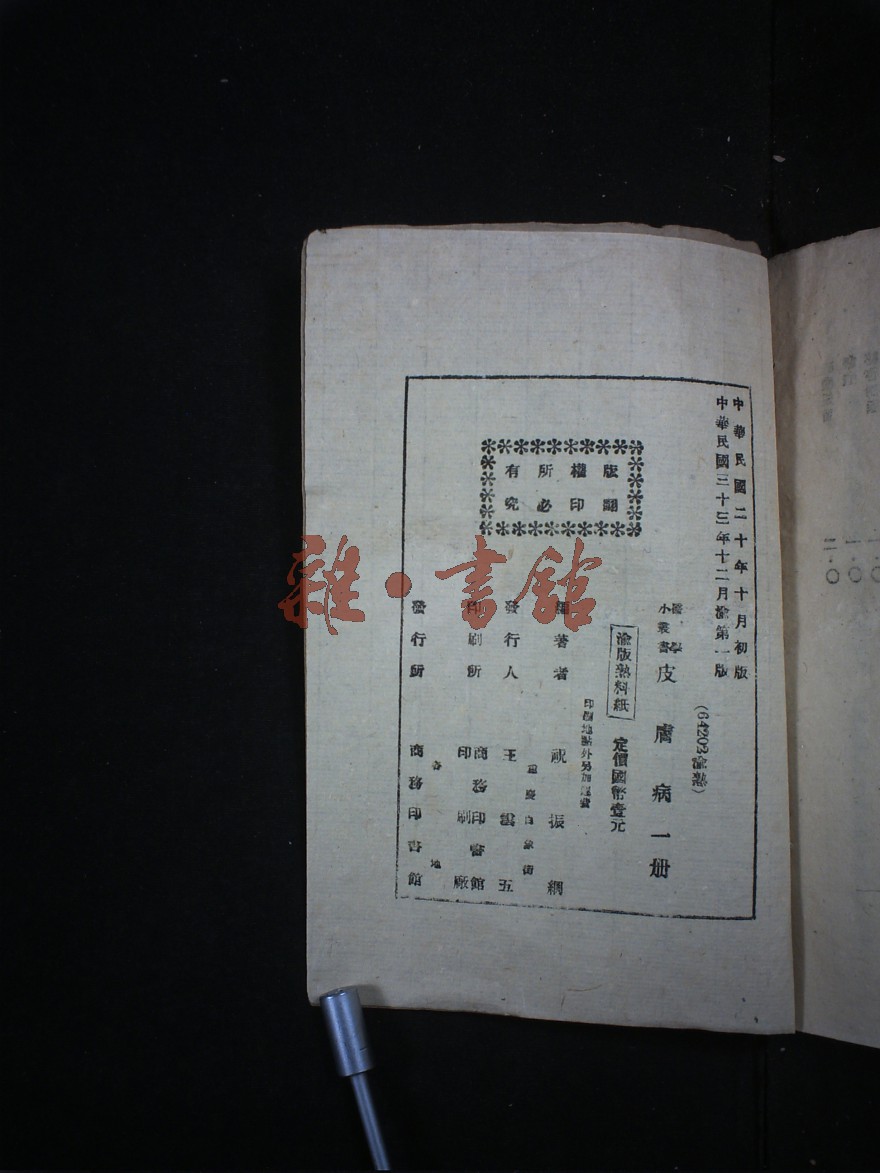 中華民國二十年十月初版
中華民國三十三年十二月渝第一版
(64203渝熟)
醫學
小叢書
皮膚病一册
渝版熟料紙
定價國幣壹元
印刷地點外另加運費
版權所有
翻印必究
編著者 祝振綱
重慶白象街
發行人 王雲五
印刷所 商務印書館
印刷廠
發行所 各地
商務印書館
雜·書館
二·〇
一·〇